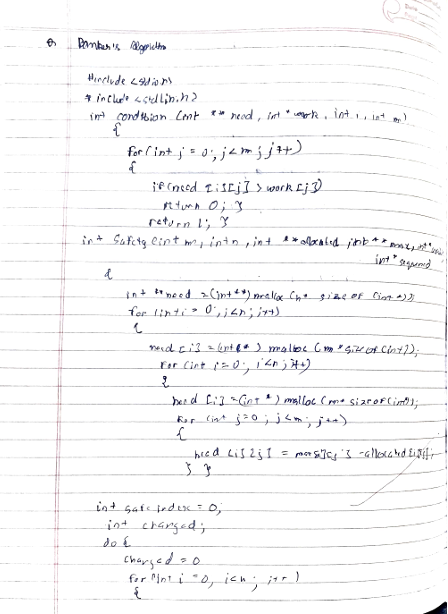 Banker's Algorithm
#include <stdio.h>
# include <stdlib.h>
int condition (int ** need, int * work, int i, int m)
{
for (int j = 0; j < m; j++)
{
if (need [i][j] > work [j])
return 0; }
return 1; }
int Safety (int m, int n, int ** allocated, int ** max, int
int * sequence)
{
int ** need = (int **) malloc (n * size of (int *));
for (int i = 0; i < n; i++)
{
need [i] = (int *) malloc (m * size of (int));
for (int i = 0; i < n; i++)
{
need [i] = (int *) malloc (m * sizeof (int));
for (int j = 0; j < m; j++)
{
need [i][j] = max [i][j] - allocated [i][j];
} }
int safe index = 0;
int changed;
do {
changed = 0
for (int i = 0, i < n; i++)
{